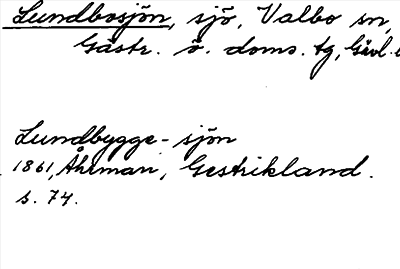 Lundbosjön, sjö, Valbo sn,
Gästr. ö. doms. tg, Gävl.
Lundbygge-sjön
1861, Åhrman, Gestrikland.
s. 74.